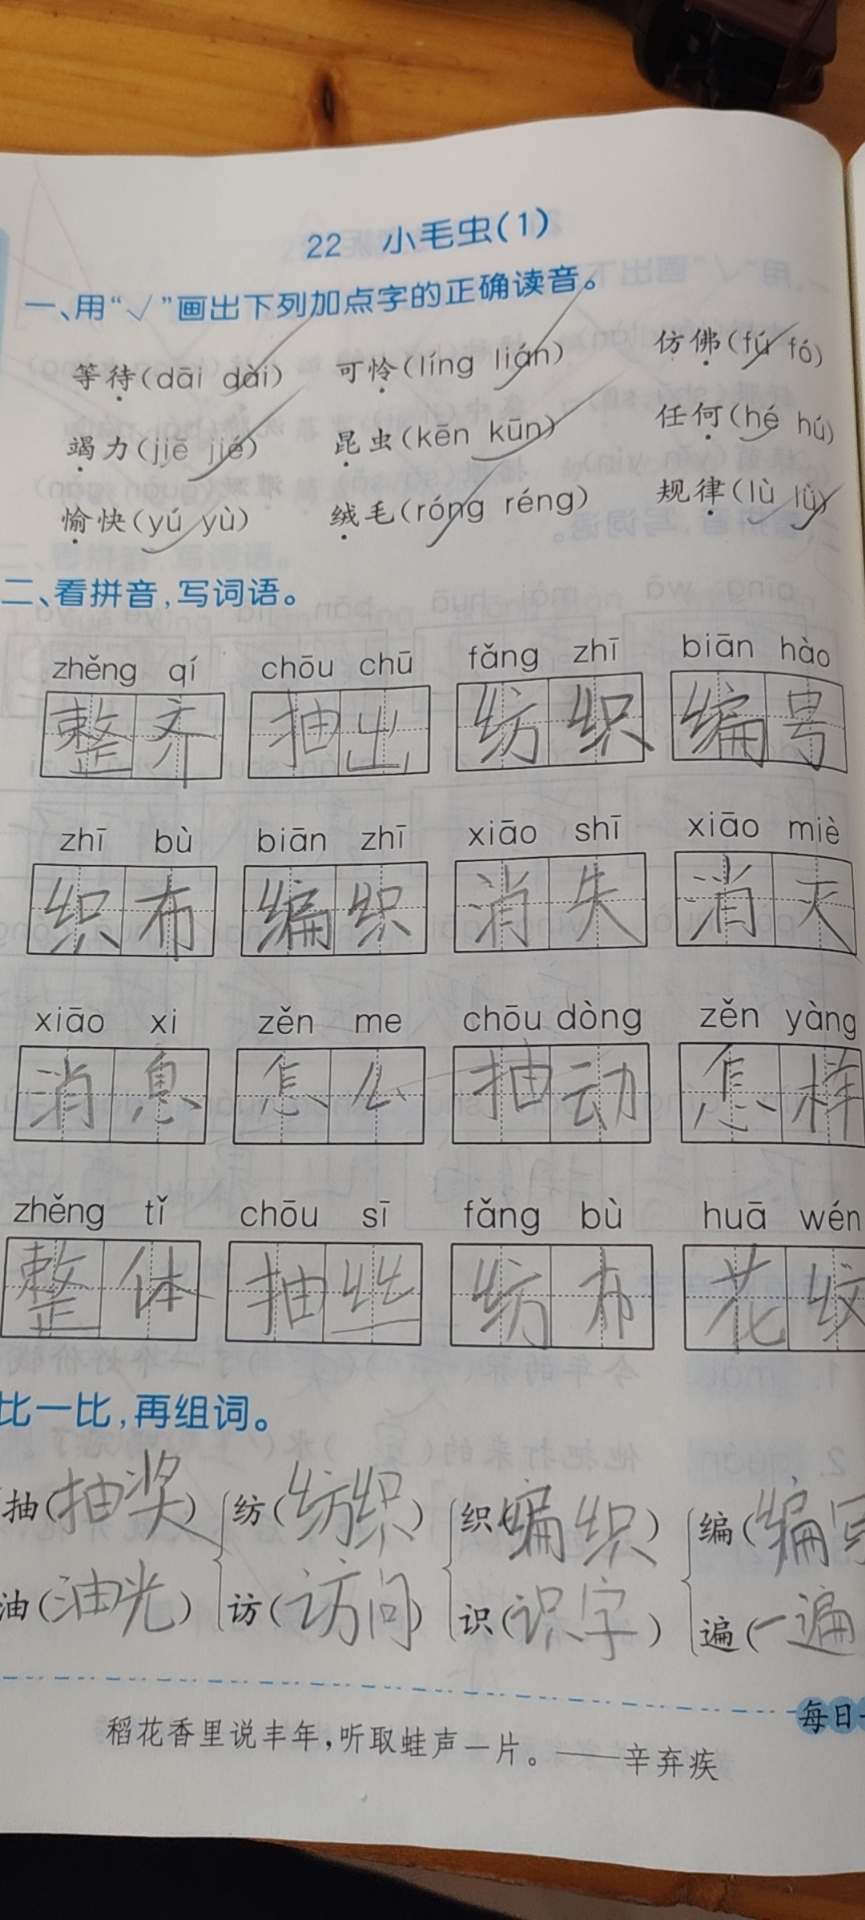 22 小毛虫(1)
一、用“√”画出下列加点字的正确读音。
等待(dāi dài) 可怜(líng lián) 仿佛(fú fó)
竭力(jiē jié) 昆虫(kēn kūn) 任何(hé hú)
愉快(yú yù) 绒毛(róng réng) 规律(lù lǜ)
二、看拼音,写词语。
zhěng qí chōu chū fǎng zhī biān hào
整齐 抽出 纺织 编号
zhī bù biān zhī xiāo shī xiāo miè
织布 编织 消失 消灭
xiāo xi zěn me chōu dòng zěn yàng
消息 怎么 抽动 怎样
zhěng tǐ chōu sī fǎng bù huā wén
整体 抽丝 纺布 花纹
比一比,再组词。
抽(抽奖) 纺(纺织) 织(编织) 编(编写
油(油光) 访(访问) 识(识字) 遍(一遍
每日一
稻花香里说丰年,听取蛙声一片。——辛弃疾